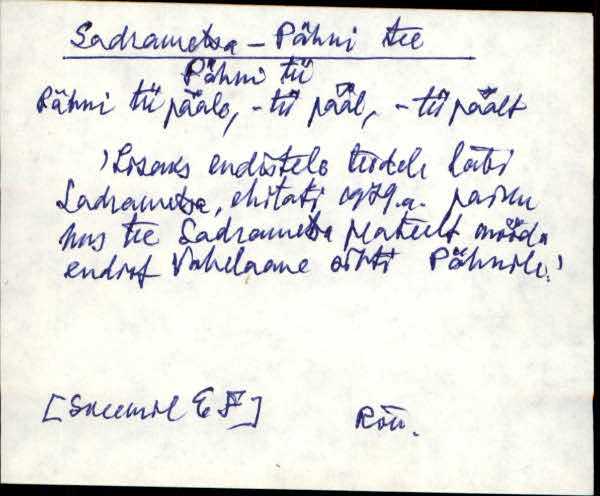 Sadrametsa – Pähni tee
Pähni tii
Pähni tii pääle, -tii pääl, -tii päält
'Lisaks endistele teedele läbi
Sadrametsa, ehitati 1979.a.
tee Sadrametsa mööda
endist Vahelaane sihti Pähnile.'
Rõu.